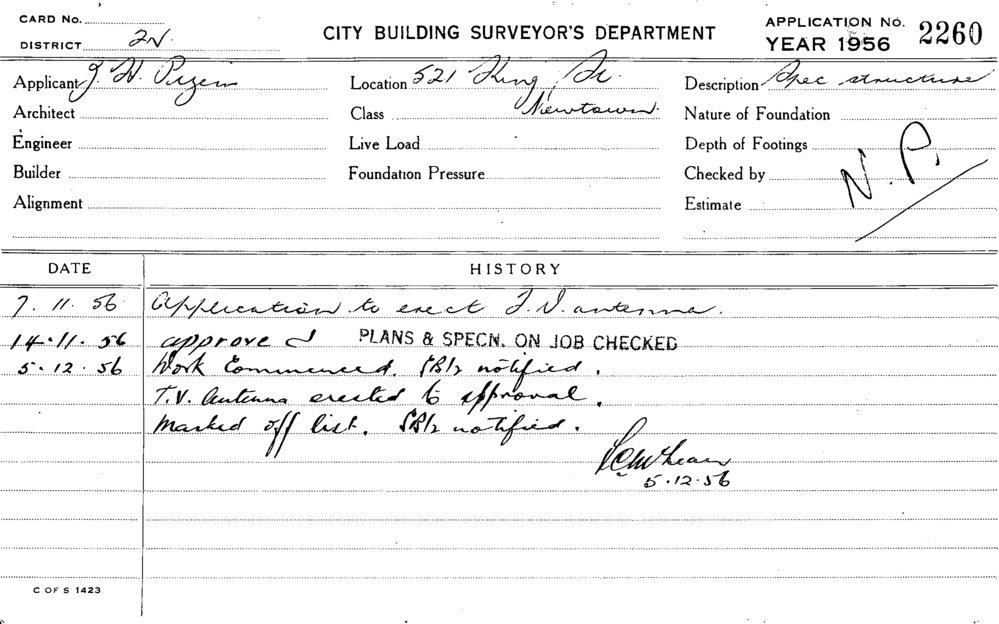 CARD No.
DISTRICT 2N.
CITY BUILDING SURVEYOR'S DEPARTMENT
APPLICATION No. 2260
YEAR 1956
Applicant J. H.
Location 521 King St.
Newtown.
Description Spec structure
Architect
Class
Nature of Foundation
Engineer
Live Load
Depth of Footings
Builder
Foundation Pressure
Checked by
N.P.
Alignment
Estimate
DATE HISTORY
7. 11. 56 Application to erect T.V. antenna.
14. 11. 56 approved PLANS & SPECN. ON JOB CHECKED
5. 12. 56 Work Commenced. notified.
T.V. Antenna erected to approval.
Marked off list. notified.
5. 12. 56
C OF S 1423